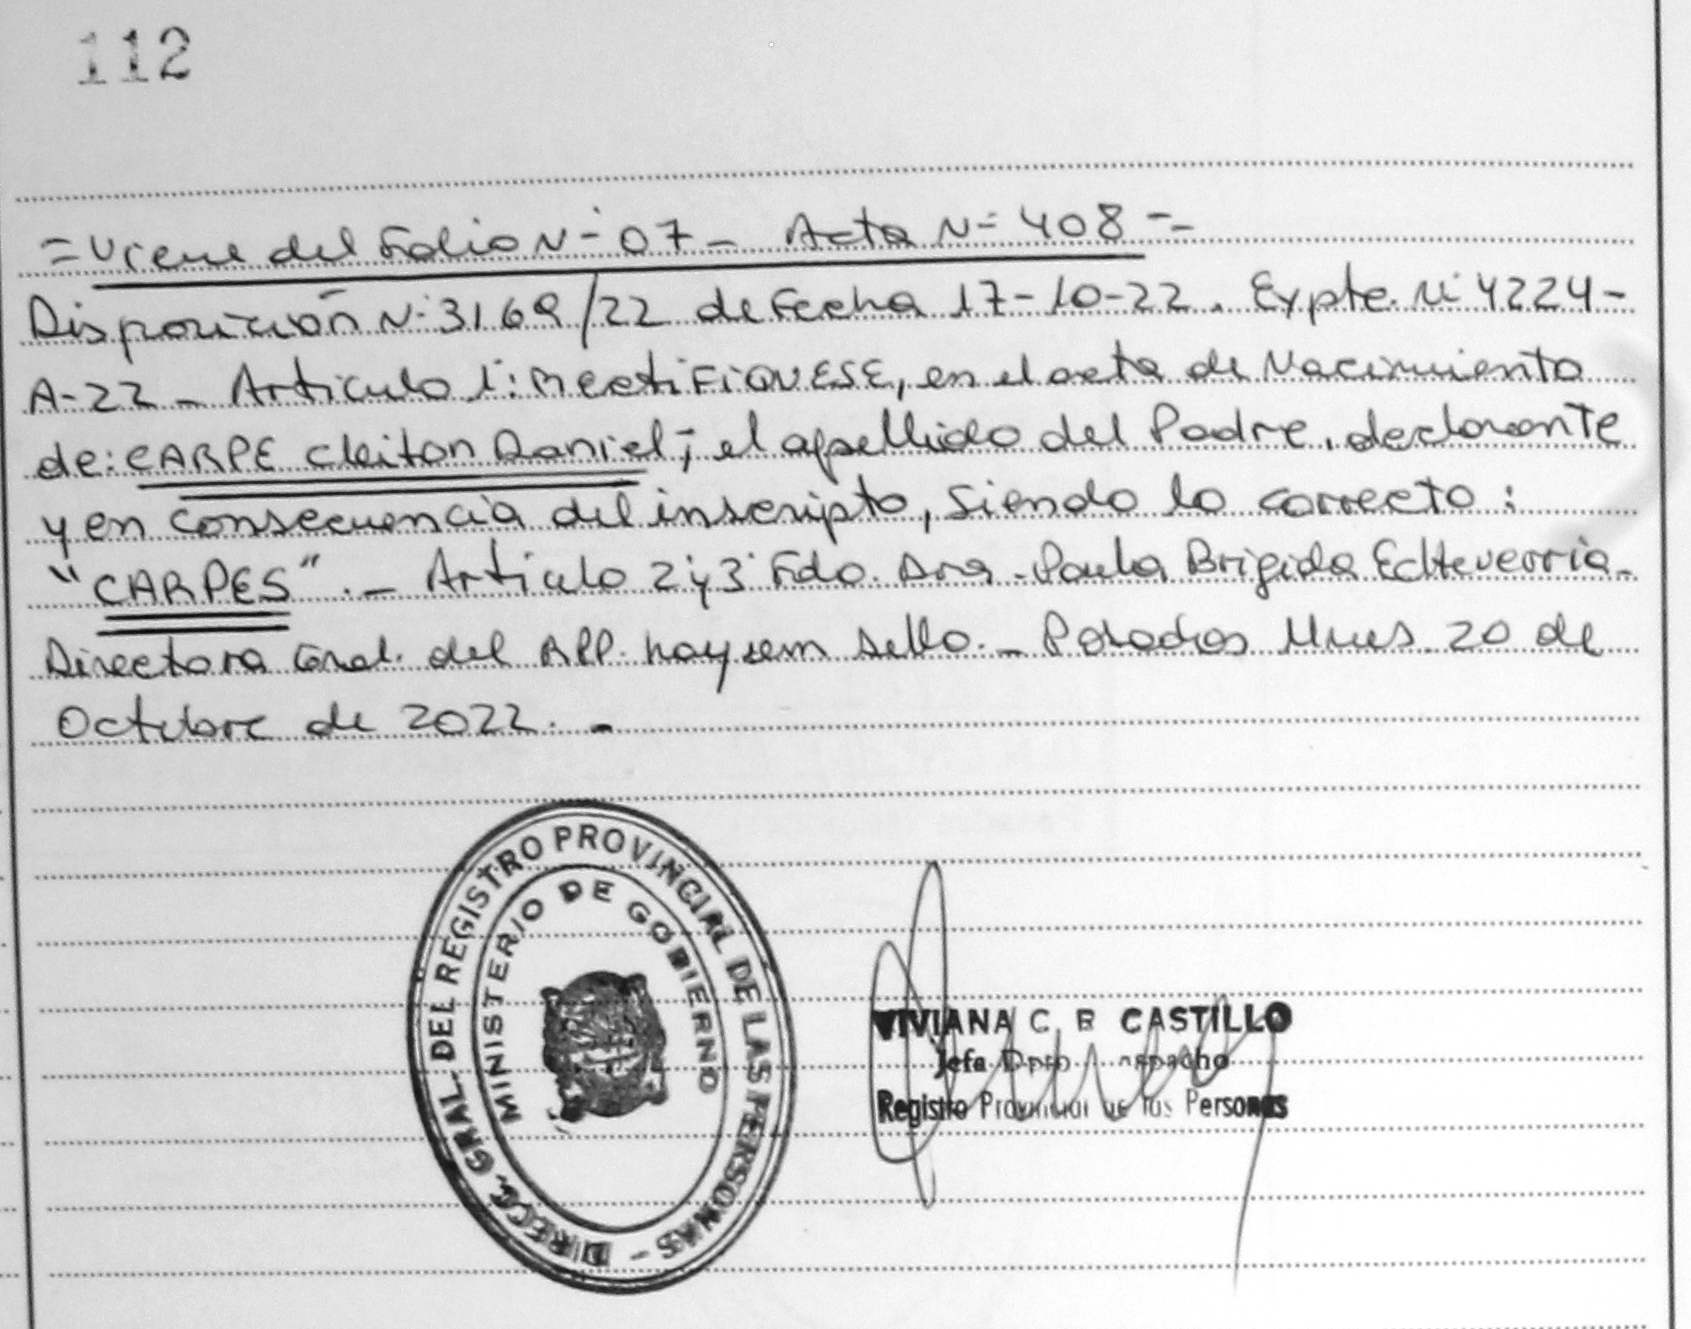 112
= Viene del Folio N° 07 - Acta N° 408 -=
Disposición N° 3169/22 de Fecha 17-10-22. Expte. N° 4224-
A-22 - Articulo 1°: RectiFiQUESE, en el acta de Nacimiento
de: CARPE Cleiton Daniel; el apellido del Padre, declarante
y en consecuencia del inscripto, Siendo lo correcto:
"CARPES". - Articulo 2° y 3° Fdo. Dra. Paula Brigida Echeverria -
Directora Gral. del RPP. hay un sello. - Posadas Mnes. 20 de
Octubre de 2022. -
DIRECC. GRAL. DEL REGISTRO PROVINCIAL DE LAS PERSONAS -
MINISTERIO DE GOBIERNO
VIVIANA C. CASTILLO
Jefa Dpto
Registro Provincial de las Personas